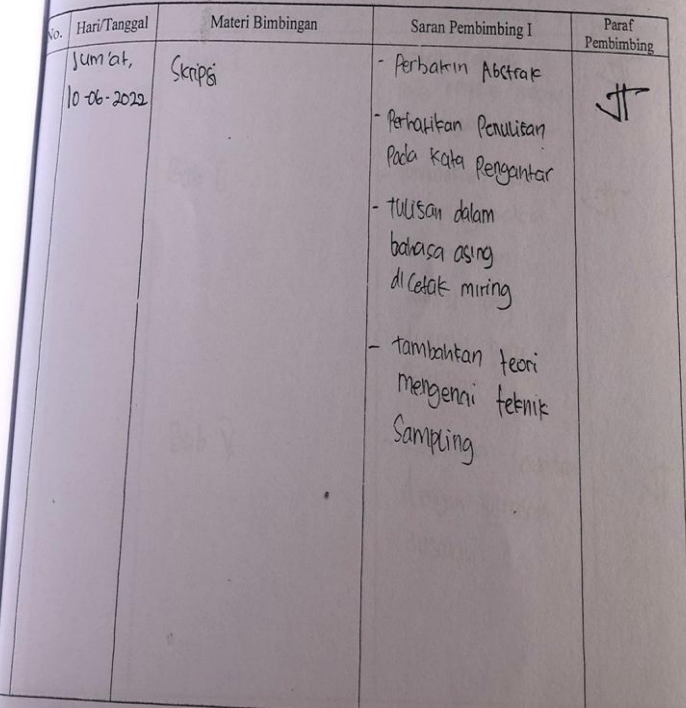 No. Hari/Tanggal Materi Bimbingan Saran Pembimbing I Paraf Pembimbing
Jum'at,
10-06-2022
Skripsi
- Perbakin Abstrak
- Perhatikan Penulisan
Pada Kata Pengantar
- tulisan dalam
bahasa asing
dicetak miring
- tambahkan teori
mengenai teknik
Sampling